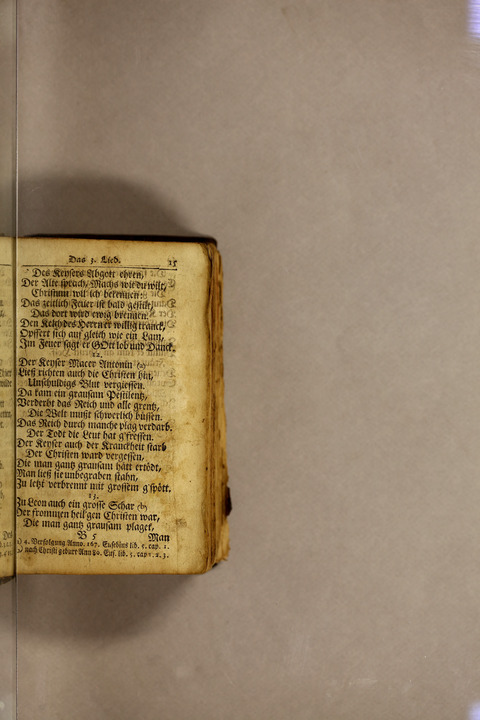 Das 3. Lied. 15
Des Keysers Abgott ehren,
Der Alte sprach, Machs wie du wilt,
Christum wil ich bekennen:
Das zeitlich Feuer ist bald gestilt,
Das dort wird ewig brennen.
Den Kelch des Herrn er willig tranck,
Opffert sich auf gleich wie ein Lam,
Im Feuer sagt er GOtt lob und Danck.
12.
Der Keyser Marcer Antonin (a)
Ließ richten auch die Christen hin,
Unschuldigs Blut vergiessen.
Da kam ein grausam Pestilentz,
Verderbt das Reich und alle grentz,
Die Welt mußt schwerlich büssen.
Das Reich durch manche plag verdarb.
Der Todt die Leut hat g'fressen.
Der Keyser auch der Kranckheit starb
Der Christen ward vergessen,
Die man gantz grausam hätt ertödt,
Man ließ sie unbegraben stahn,
Zu letzt verbrennt mit grossem g'spött.
13.
Zu Leon auch ein grosse Schar (b)
Der frommen heil'gen Christen war,
Die man gantz grausam plaget,
B 5 Man
a) 4. Verfolgung Anno. 167. Eusebius lib. 5. cap. 1.
b) nach Christi geburt Ann 80. Eus. lib. 5. cap 1. 2. 3.